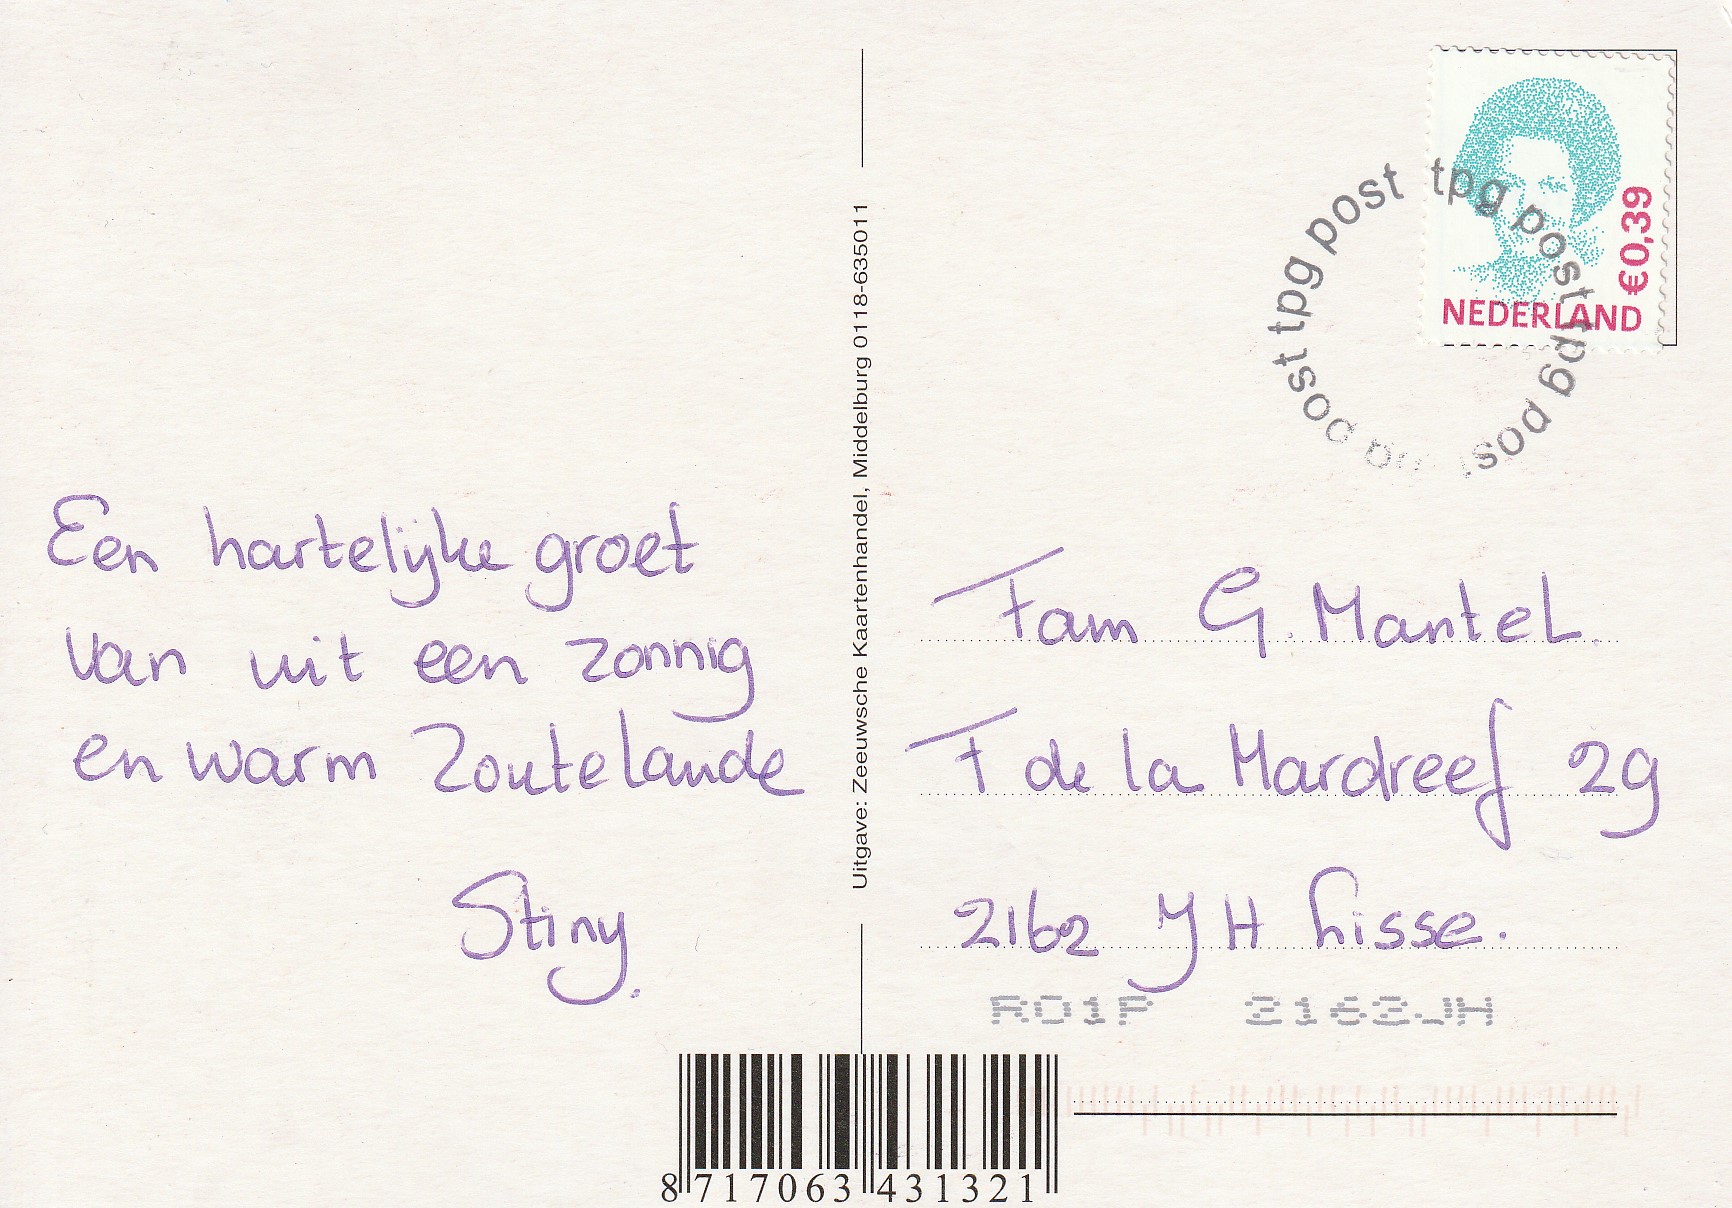 Een hartelijke groet
van uit een zonnig
en warm Zoutelande
Stiny.
Uitgave: Zeeuwsche Kaartenhandel, Middelburg 0118-635011
tpg post tpg post tpg pos
post tpg post
€0,39
NEDERLAND
Fam G. Mantel.
F de la Mardreef 29
2162 JH Lisse.
R01P 2162JH
8 717063 431321